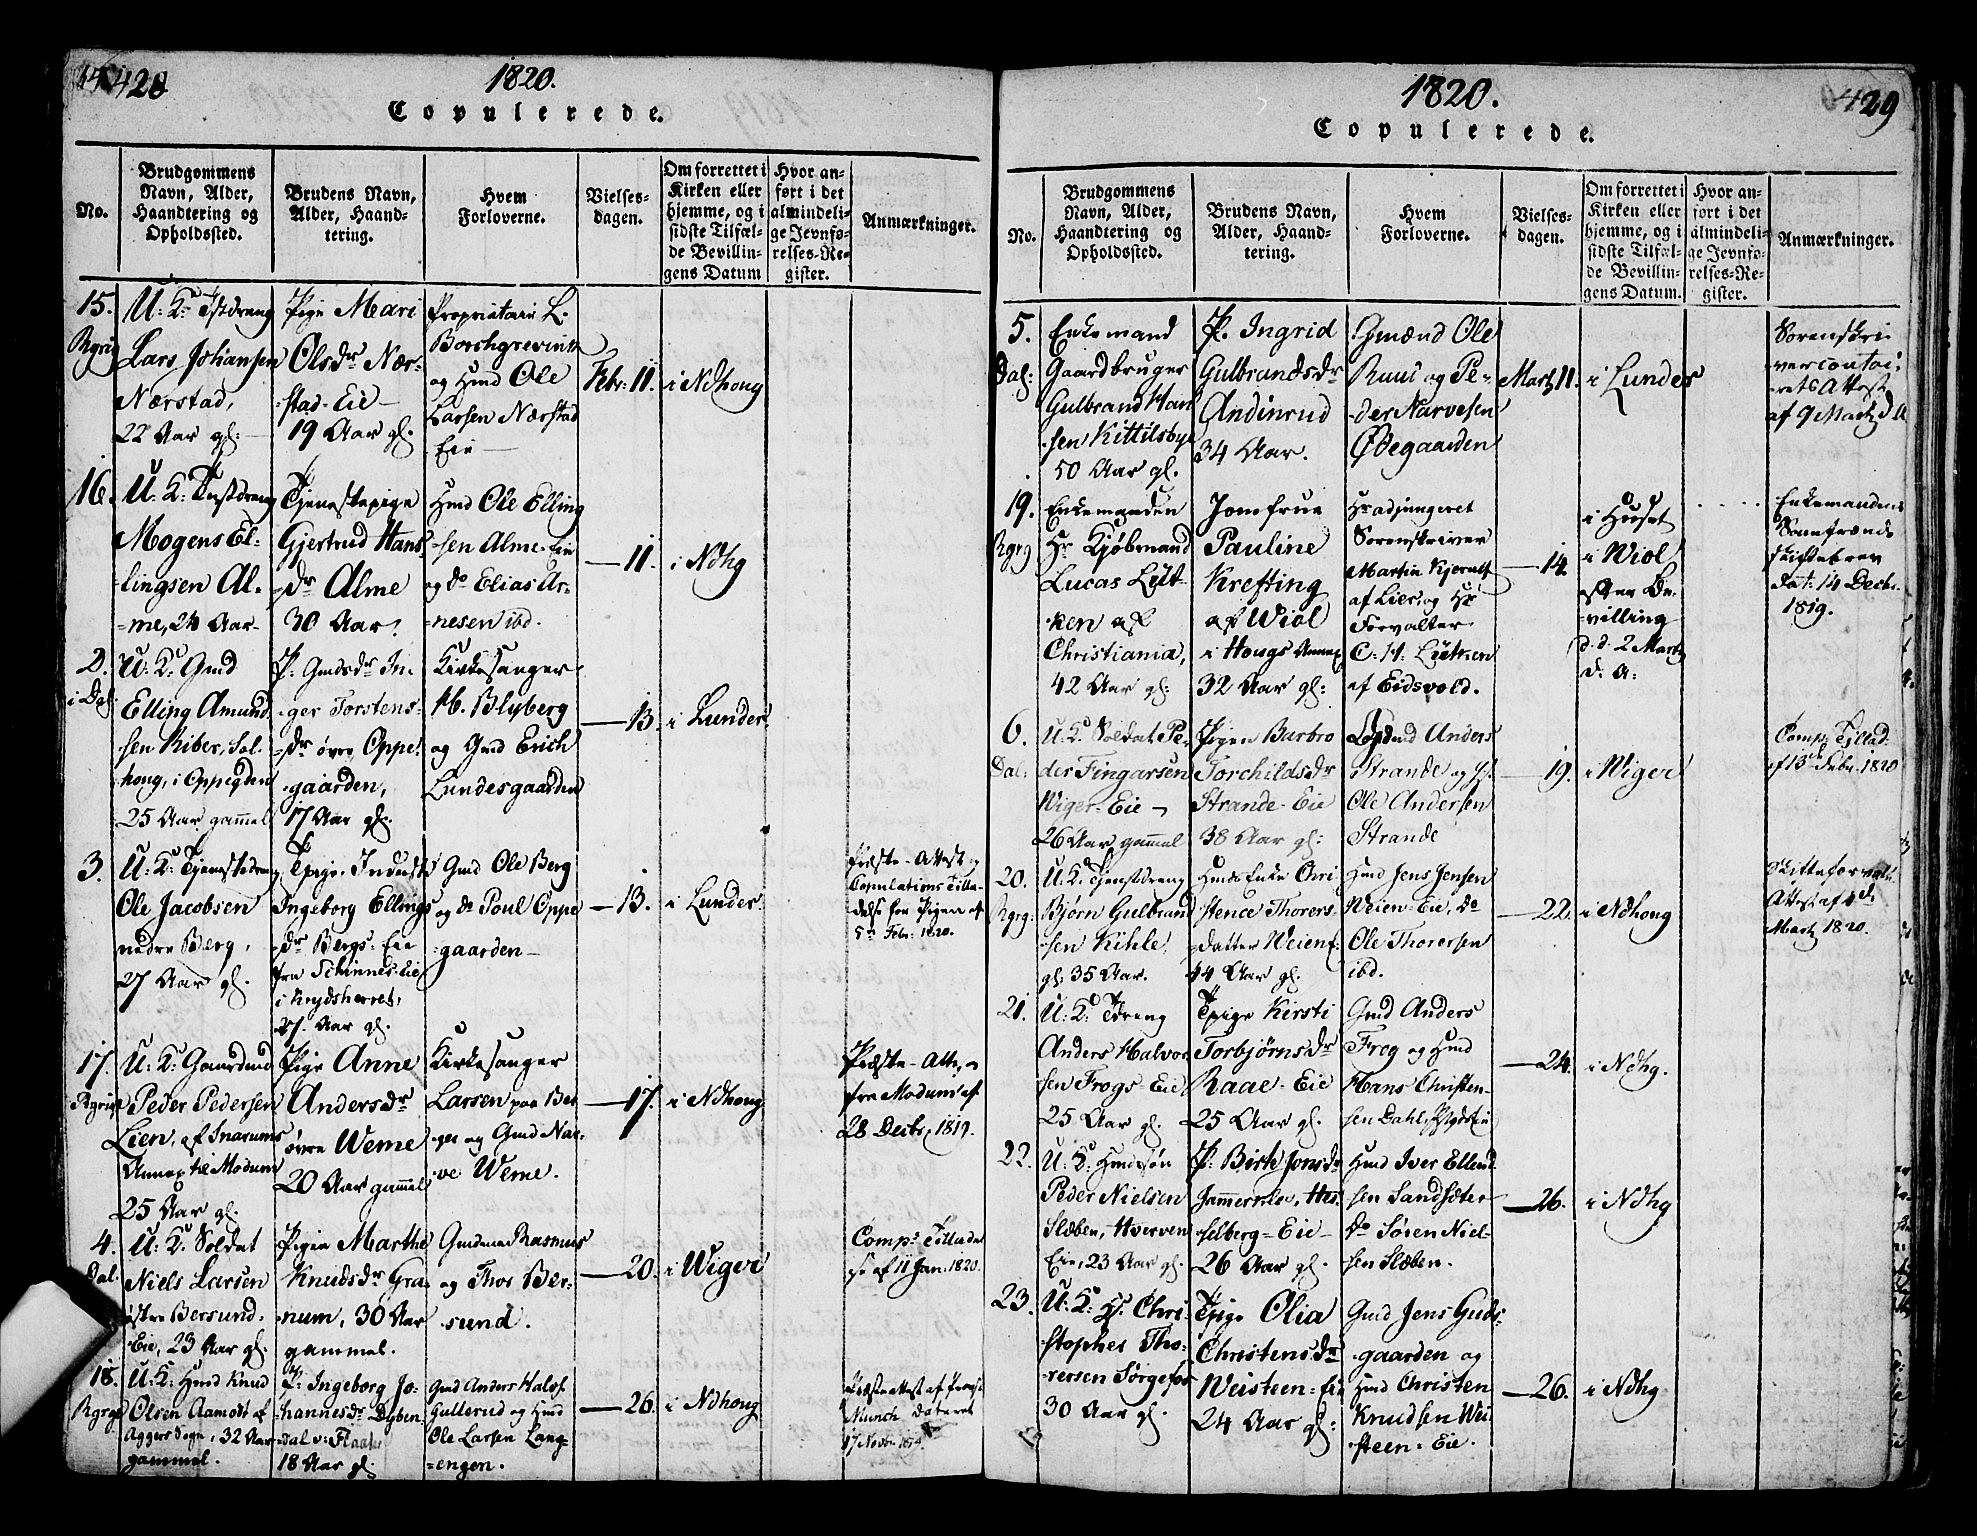 428
1820.
Copulerede.
No.
Brudgommens
Navn, Alder,
Haandtering og
Opholdssted.
Brudens Navn,
Alder, Haand-
tering.
Hvem
Forloverne.
Vielses-
dagen.
Om forrettet i
Kirken eller
hjemme, og i
sidste Tilfæl-
de Bevillin-
gens Datum
Hvor an-
ført i det
almindeli-
ge Jevnfø-
relses-Re-
gister.
Anmærkninger.
15.
Rgrig
U: K:
Lars Johansen
Nærstad,
22 Aar gl:
Pige Mari
Olsdr Nær-
stad-Eie
19 Aar gl.
Proprietair L.
Borchgrevink
og Hmd Ole
Larsen Nærstad
Eie
Febr: 11.
i Ndhoug
16.
U: K: Tnstdreng
Mogens El-
lingsen Al-
me, 24 Aar
Tjenestepige
Gjertrud Hans
dr Alme
30 Aar.
Hmd Ole Elling
sen Alme-Eie
og do Elias Ar-
nesen ibd.
11.
i Ndhg
2.
i Dal
U: K: Gmd
Elling Amund
sen Riber, Sol-
houg, i Oppegden
25 Aar gammel
P. Gmdsdr In-
ger Torstens-
dr øvre Oppe-
gaarden,
17 Aar gl:
Kirkesanger
Kb. Blyberg
og Gmd Erich
Lundesgaarden
13.
i Lunder
3.
U: K: Tjenestedreng
Ole Jacobsen
nedre Berg,
27 Aar gl.
Tpige Inderst
Ingeborg Ellings
dr Bergs-Eie
fra Schinnes-Eie
i Krydsherret,
27 Aar gl.
Gmd Ole Berg
og do Poul Oppe
gaarden
13.
i Lunder
Præste-Attest og
Copulations Tilla-
delse for Pigen af
5te Febr: 1820.
17.
Rgrige
U: K: Gaardmd
Peder Pedersen
Lien, af Snarums
Annex til Modum
25 Aar gl.
Pige Anne
Andersdr
øvre Werne
20 Aar gammel
Kirkesanger
Larsen paa Ber
ger og Gmd Nar-
ve Werne.
17.
i Ndhoug
Præste-Att.
fra Modum af
28 Decbr, 1819.
4.
Dal.
U: K: Soldat
Niels Larsen
østre Bersund-
Eie, 23 Aar gl.
Pigen Marthe
Knudsdr Gra-
num, 30 Aar
gammel.
Gmdene Rasmus
og Thor Ber-
sund.
20.
i Wiger
Comps Tillade
se af 11 Jan: 1820.
18.
Rgrge
U: K: Hmd Knud
Olsen Aamodt af
Aggers Sogn, 32 Aar
gammel.
P: Ingeborg Jo-
hannesdr Dyben-
dal
18 Aar gl.
Gmd Anders Halvs.
Gullerud og Hmd
Ole Larsen Lang-
engen.
26.
i Ndhoug
Præsteattest af Provst
Munch dateret
17 Novbr 1819
429
1820.
Copulerede.
No.
Brudgommens
Navn, Alder,
Haandtering og
Opholdssted.
Brudens Navn,
Alder, Haand-
tering.
Hvem
Forloverne.
Vielses-
dagen.
Om forrettet i
Kirken eller
hjemme, og i
sidste Tilfæl-
de Bevillin-
gens Datum.
Hvor an-
ført i det
almindeli-
ge Jevnfø-
relses-Re-
gister.
Anmærkninger.
5.
Dal:
Enkemand
Gaardbruger
Gulbrand Han
sen Kittilsbye
50 Aar gl.
P. Ingrid
Gulbrandsdr
Andinrud
34 Aar.
Gmænd Ole
Ruus og Pe-
der Narvesen
Ødegaarden
Martz 11.
i Lunder
Sorenskri
vercontoi-
rets Attest
af 9 Martz d. A
19.
Rgrg
Enkemanden
Hr Kjøbmand
Lucas Lyt-
ken af
Christiania,
42 Aar gl:
Jomfrue
Pauline
Krefting
af Wiøl
i Hougs Annex
32 Aar gl:
Hr adjungeret
Sorenskriver
Martin Kjerulf
af Lier, og Hr
Forvalter
C: H: Lytken
af Eidsvold.
14.
i Huset
i Wiøl
efter Be-
villing
d. d. 2 Martz
d. A:
Enkemandens
Samfrænde
skiftebrev
dat: 14 Decbr.
1819.
6.
Dal:
U: K: Soldat Pe-
der Fingarsen
Wiger-Eie
26 Aar gammel
Pigen Barbro
Torchildsdr
Strande-Eie
38 Aar gl:
Anders
Strande og
Ole Andersen
Strande
19.
i Wiger
Comp: Tillad.
af 13de Febr. 1820
20.
Rgrg:
U: K: Tjenstdreng
Bjørn Gulbrand
sen Kihle,
gl: 35 Aar.
Hmds Enke Chri
stence Thorers-
datter Weien
44 Aar gl.
Hmd Jens Jensen
Weien-Eie, do
Ole Thorersen
ibd.
22.
i Ndhoug
Skifteforvalt.
Attest af 4de
Martz 1820.
21.
U: K: Tdreng
Anders Halvor
sen Frogs-Eie
25 Aar gl.
Tpige Kirsti
Torbjørnsdr
Raae-Eie
25 Aar gl.
Gmd Anders
Frog og Hmd
Hans Christen-
sen Dahl,
24.
i Ndhg.
22.
U: K: Hmdssøn
Peder Nielsen
Slæben, Hverven
Eie, 23 Aar gl.
P: Birte Jonsdr
Jammernie, Hes-
selberg-Eie
26 Aar gl.
Hmd Iver Ellend
sen Sandsæter
do Søren Niel-
sen Slæben.
26.
i Ndhg
23.
U: K: Hr. Chri-
stopher Tho-
rersen Sørgefos
30 Aar gl.
Tpige Olia
Christensdr
Weisteen-Eie
24 Aar gl:
Gmd Jens Guds-
gaarden og
Hmd Christen
Knudsen Wei
steen-Eie.
26.
i Ndhg